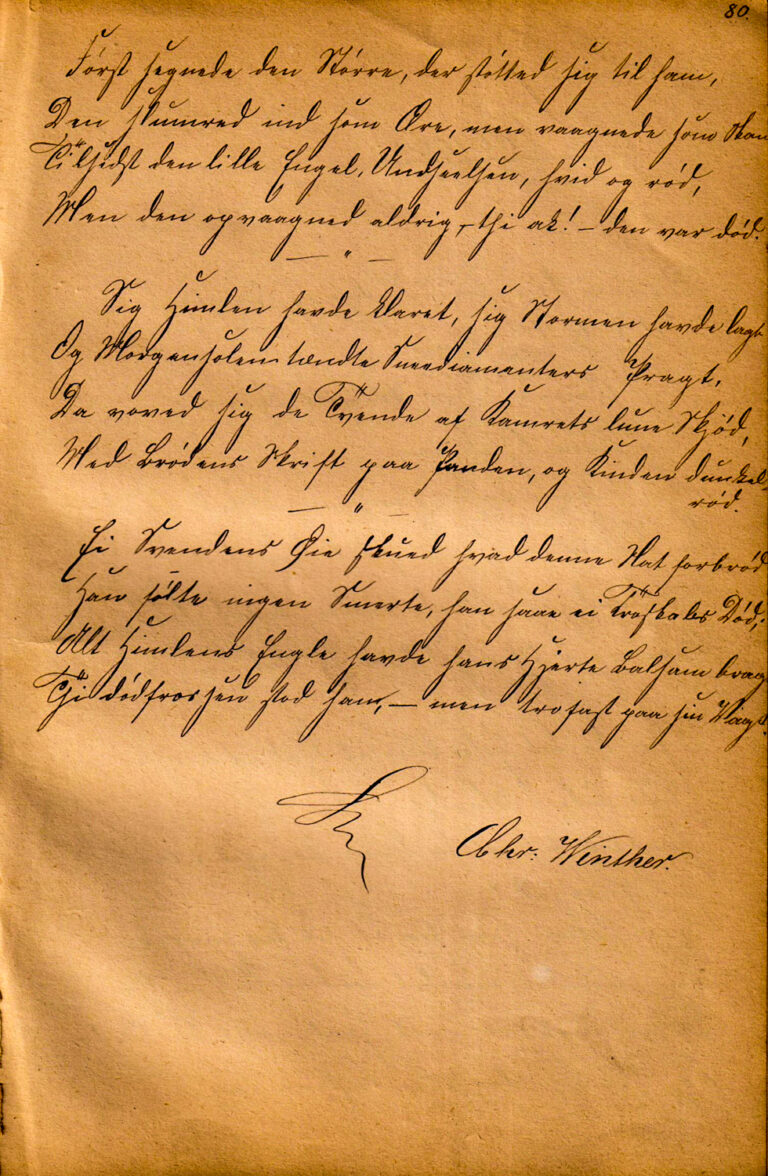 80.
Først segnede den Større, der støtted sig til ham,
Den slumred ind som Ore, men vaagnede som Skam
Tilsidst den lille Engel, Undseelsen, hvid og rød,
Men den opvaagned aldrig, – thi ak! – den var død.
— " —
Sig Himlen havde klaret, sig Stormen havde lagt
Og Morgensolen tændte Sneediamanters Pragt,
Da voved sig de Tvende af Kamrets lune Skjød,
Med Brødens Skrift paa Panden, og Kinden dunkel-
rød.
— " —
Ei Svendens Øie skued hvad denne Nat forbrød
Han følte ingen Smerte, han saae ei Troskabs Død;
Alt Himlens Engle havde hans Hjerte Balsam brag
Thi dødfrossen stod han, — men trofast paa sin Vagt.
Chr. Winther.